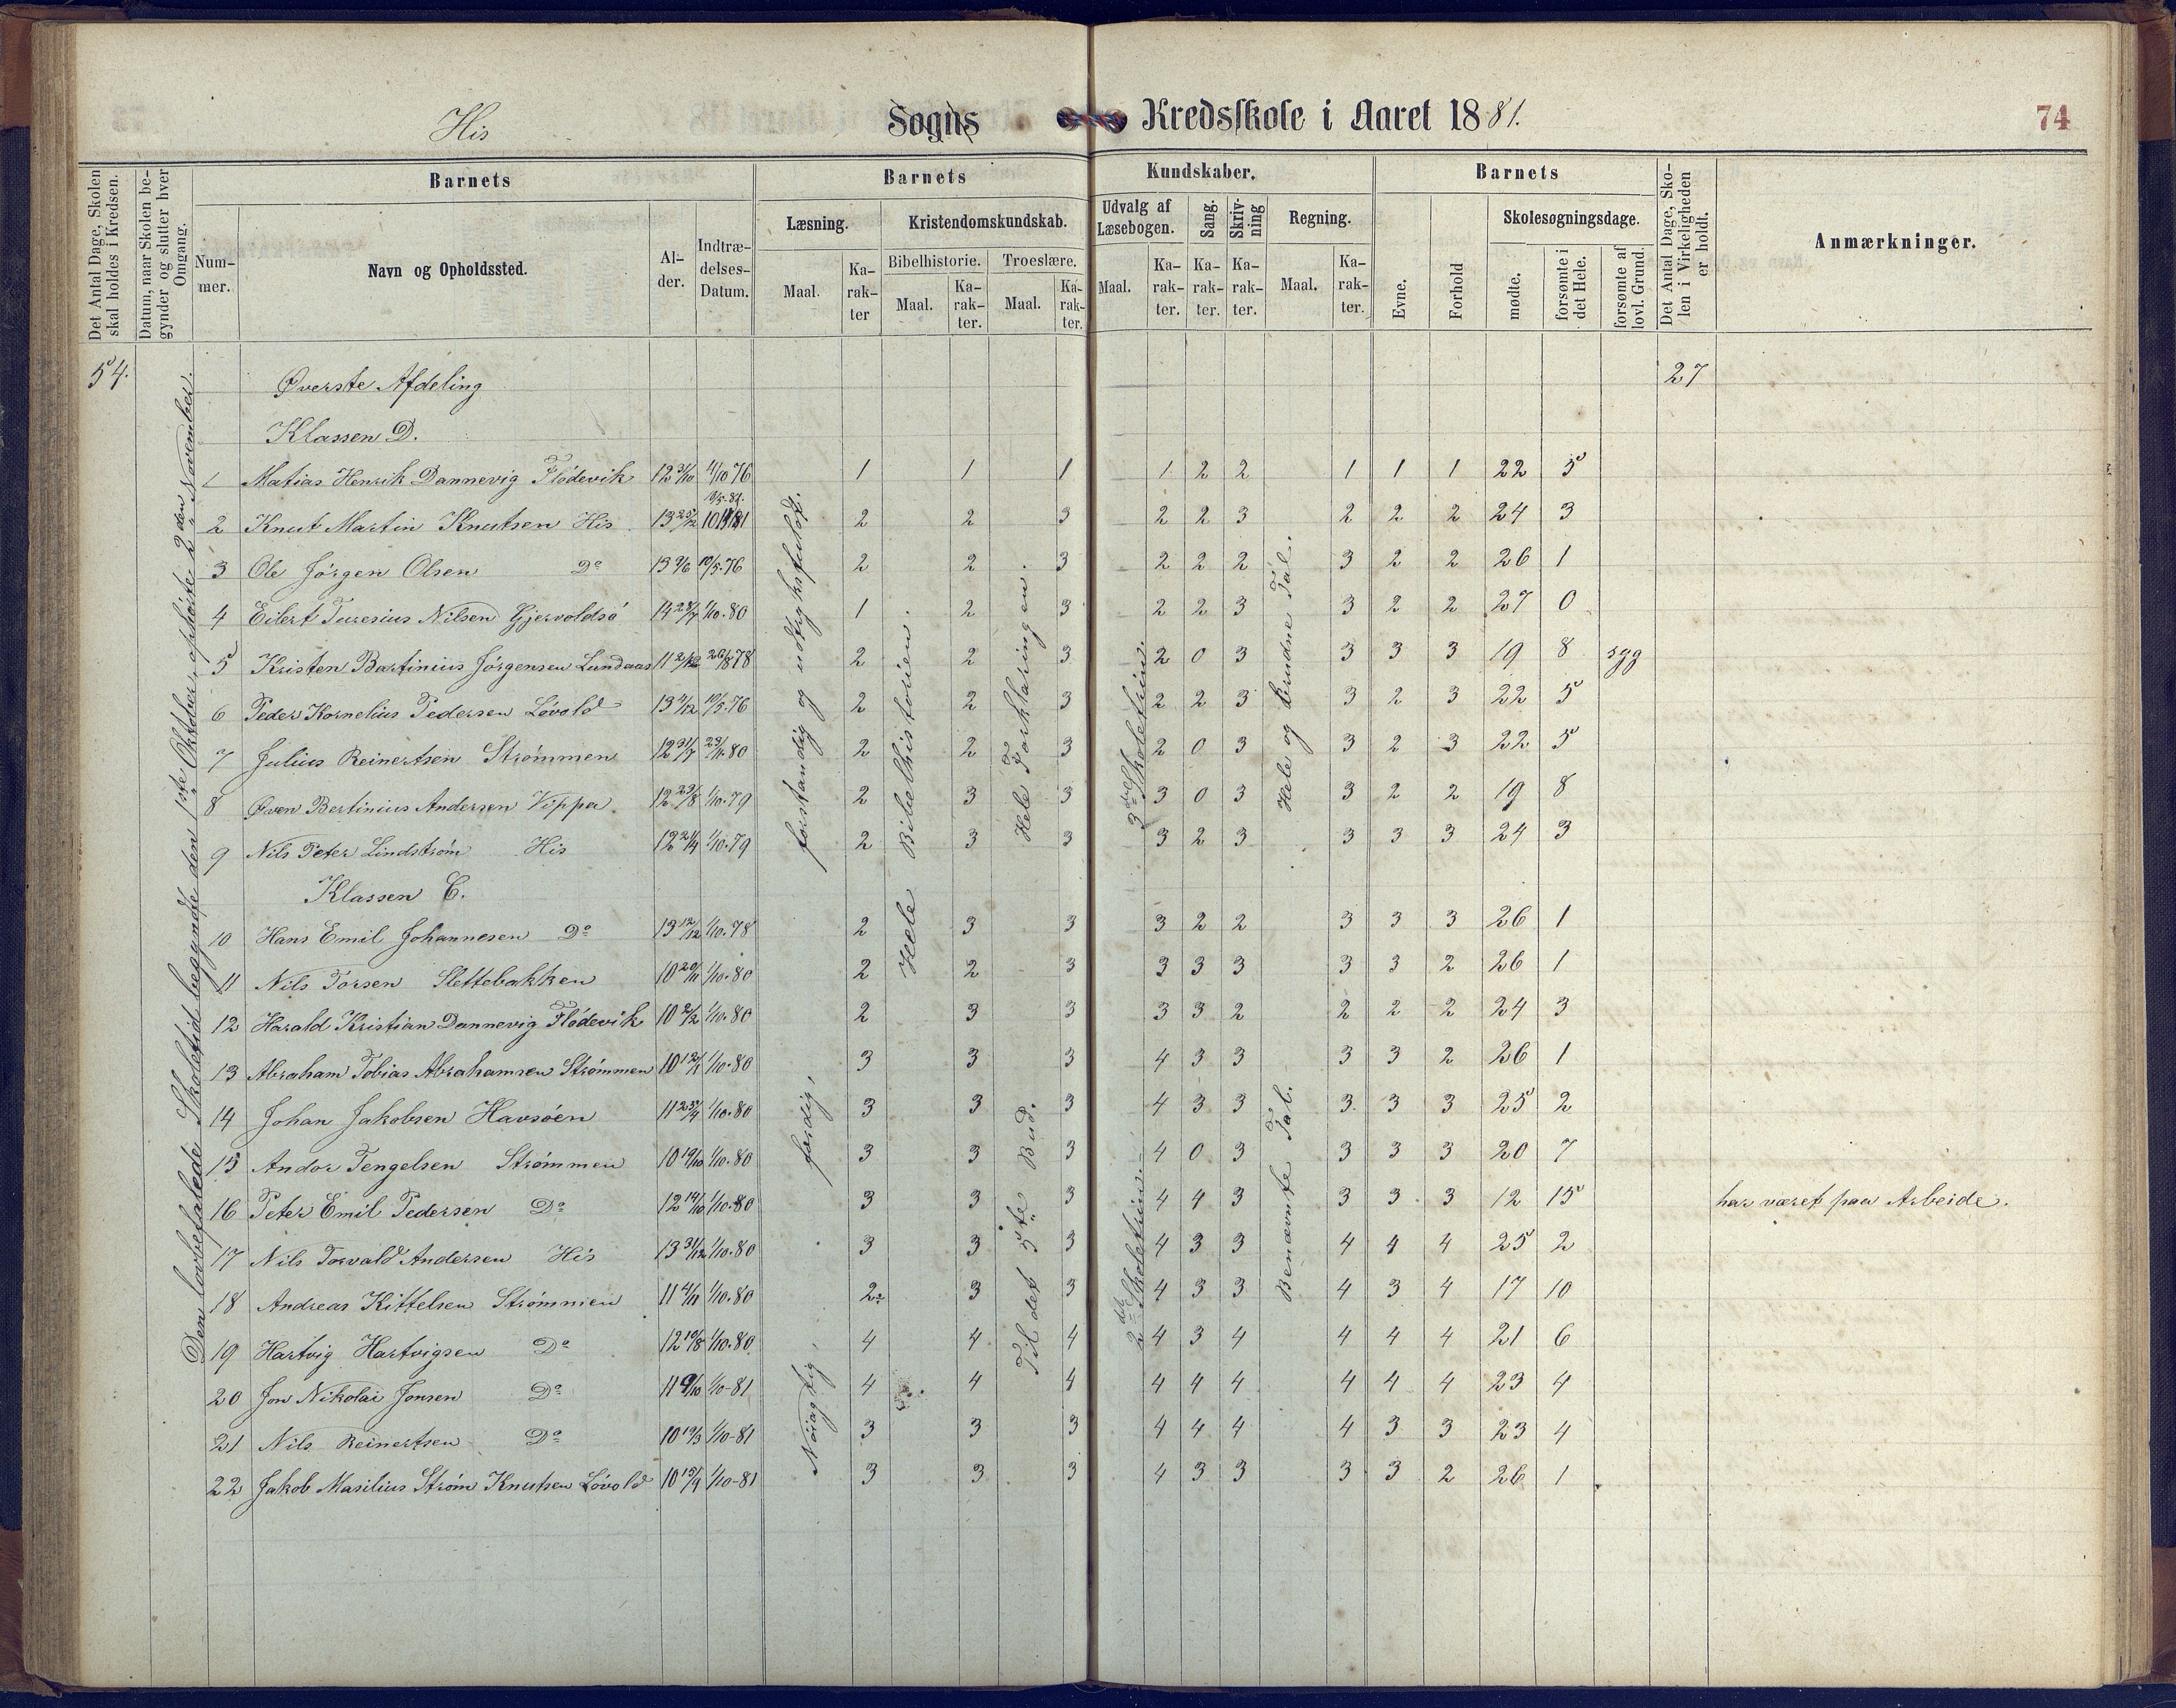 His Sogns Kredsskole i Aaret 1881. 74
Det Antal Dage, Skolen skal holdes i Kredsen.
Datum, naar Skolen begynder og slutter hver Omgang.
Barnets
Nummer.
Navn og Opholdssted.
Alder.
Indtrædelses-Datum.
Barnets Kundskaber.
Læsning.
Maal.
Karakter
Kristendomskundskab.
Bibelhistorie.
Maal.
Karakter.
Troeslære.
Maal.
Karakter.
Udvalg af Læsebogen.
Maal.
Karakter.
Sang.
Karakter.
Skrivning
Karakter.
Regning.
Maal.
Karakter.
Barnets
Evne.
Forhold
Skolesøgningsdage.
mødte.
forsømte i det Hele.
forsømte af lovl. Grund.
Det Antal Dage, Skolen i Virkeligheden er holdt.
Anmærkninger.
54. Øverste Afdeling 27
Klassen D.
1 Matias Henrik Dannevig Flödevik 12 31/10 4/10 76 1 1 1 1 2 2 1 1 1 22 5
2 Knut Martin Knutsen His 13 25/12 2 2 3 2 2 3 2 2 2 24 3
3 Ole Jörgen Olsen Do 13 9/6 10/5.76 2 2 3 2 2 2 3 2 2 26 1
4 Eilert Turesius Nilsen Gjervoldsö 14 28/7 1/10.80 1 2 3 2 2 3 3 2 2 27 0
5 Kristen Bartinius Jörgensen Lundaas 11 2/12 26/8 78 2 2 3 2 0 3 3 3 3 19 8 syg
6 Peder Kornelius Pedersen Lövold 13 4/12 10/5.76 2 2 3 2 2 3 3 2 3 22 5
7 Julius Reinertsen Strömmen 12 31/7 23/11.80 2 2 3 2 0 3 3 2 3 22 5
8 Oven Bertinius Andersen Vippa 12 23/8 1/10.79 2 3 3 3 0 3 3 2 2 19 8
9 Nils Peter Lindström His 12 24/4 1/10.79 2 3 3 3 2 3 3 3 3 24 3
Klassen C.
10 Hans Emil Johannesen Do 13 12/12 1/10.78 2 3 3 3 2 2 3 3 3 26 1
11 Nils Torsen Slettebakken 10 20/11 1/10.80 2 2 3 3 3 3 3 3 2 26 1
12 Harald Kristian Dannevig Flödevik 10 2/2 1/10.80 2 3 3 3 3 2 2 2 2 24 3
13 Abraham Tobias Abrahamsen Strömmen 10 12/1 1/10.80 3 3 3 4 3 3 3 3 2 26 1
14 Johan Jakobsen Havsöen 11 25/9 1/10.80 3 3 3 4 3 3 3 3 3 25 2
15 Andor Tengelsen Strömmen 10 19/10 1/10.80 3 3 3 4 0 3 3 3 3 20 7
16 Peter Emil Pedersen Do 12 14/10 1/10.80 3 3 3 4 4 3 3 3 3 12 15 har været paa Arbeide.
17 Nils Torvald Andersen His 13 31/12 1/10.80 3 3 3 4 3 3 4 4 4 25 2
18 Andreas Kittelsen Strömmen 11 4/11 1/10.80 2 3 3 4 3 3 4 3 4 17 10
19 Hartvig Hartvigsen Do 12 10/8 1/10.80 4 4 4 4 3 4 4 4 4 21 6
20 Jon Nikolai Jonsen Do 11 9/10 1/10-81 4 4 4 4 4 4 4 4 4 23 4
21 Nils Reinertsen Do 10 19/3 1/10-81 3 3 3 4 4 4 4 3 3 23 4
22 Jakob Masilius Ström Knutsen Lövold 10 15/9 1/10-81 3 3 3 4 3 3 3 3 2 26 1
Den lovbefalede Skoletid begyndte den 1ste Oktober, ophörte 2den November.
forstandig og udtryksfuldt.
færdig,
Nöiagtig,
Hele Bibelhistorien.
Hele Forklaringen.
Til det 5te Bud.
3die Skoletrin.
2det Skoletrin.
Hele og brudne Tal.
Benævnte Tal.